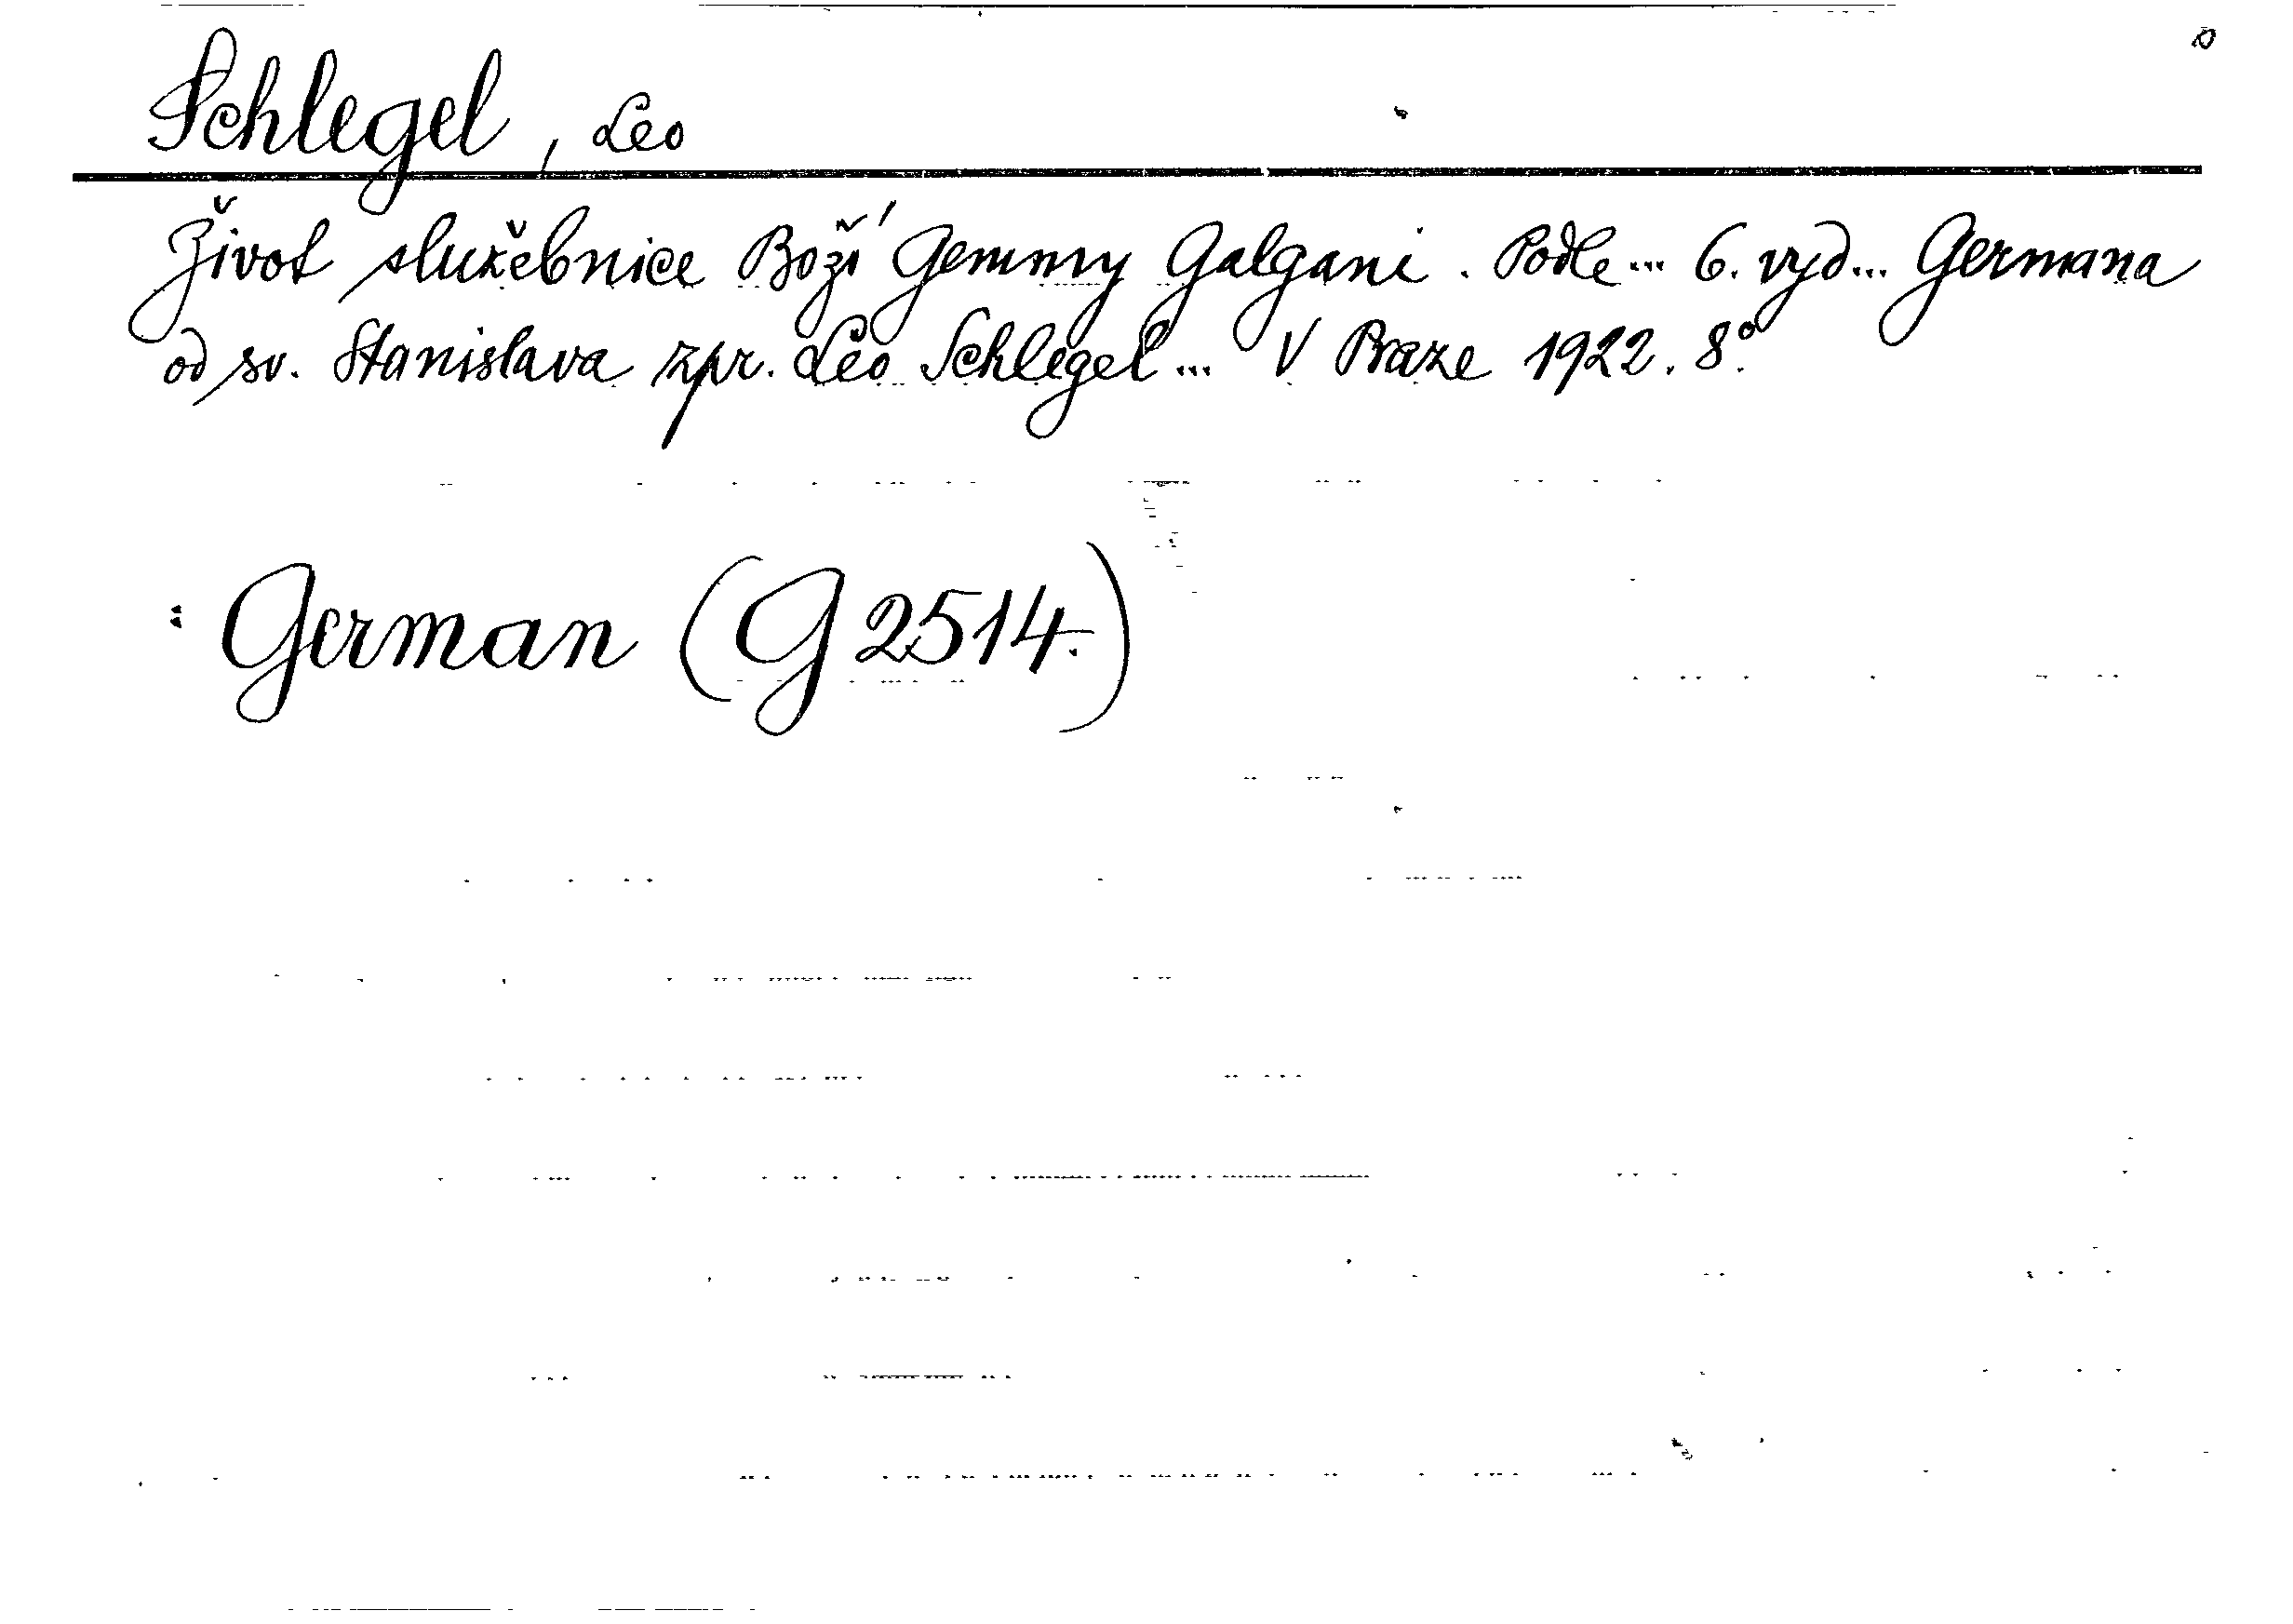 Schlegel, Leo
Život služebnice Boží Gemmy Galgani. Podle... 6. vyd... Germana
od sv. Stanislava zpr. Leo Schlegel... V Praze 1922. 8°.
: German (G 2514.)